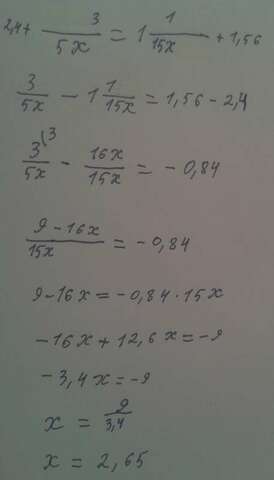 2,4 + 3/5x = 1 1/15x + 1,56
3/5x - 1 1/15x = 1,56 - 2,4
3\3/5x - 16x/15x = -0,84
9-16x/15x = -0,84
9-16x = -0,84·15x
-16x + 12,6x = -9
-3,4x = -9
x = 9/3,4
x = 2,65